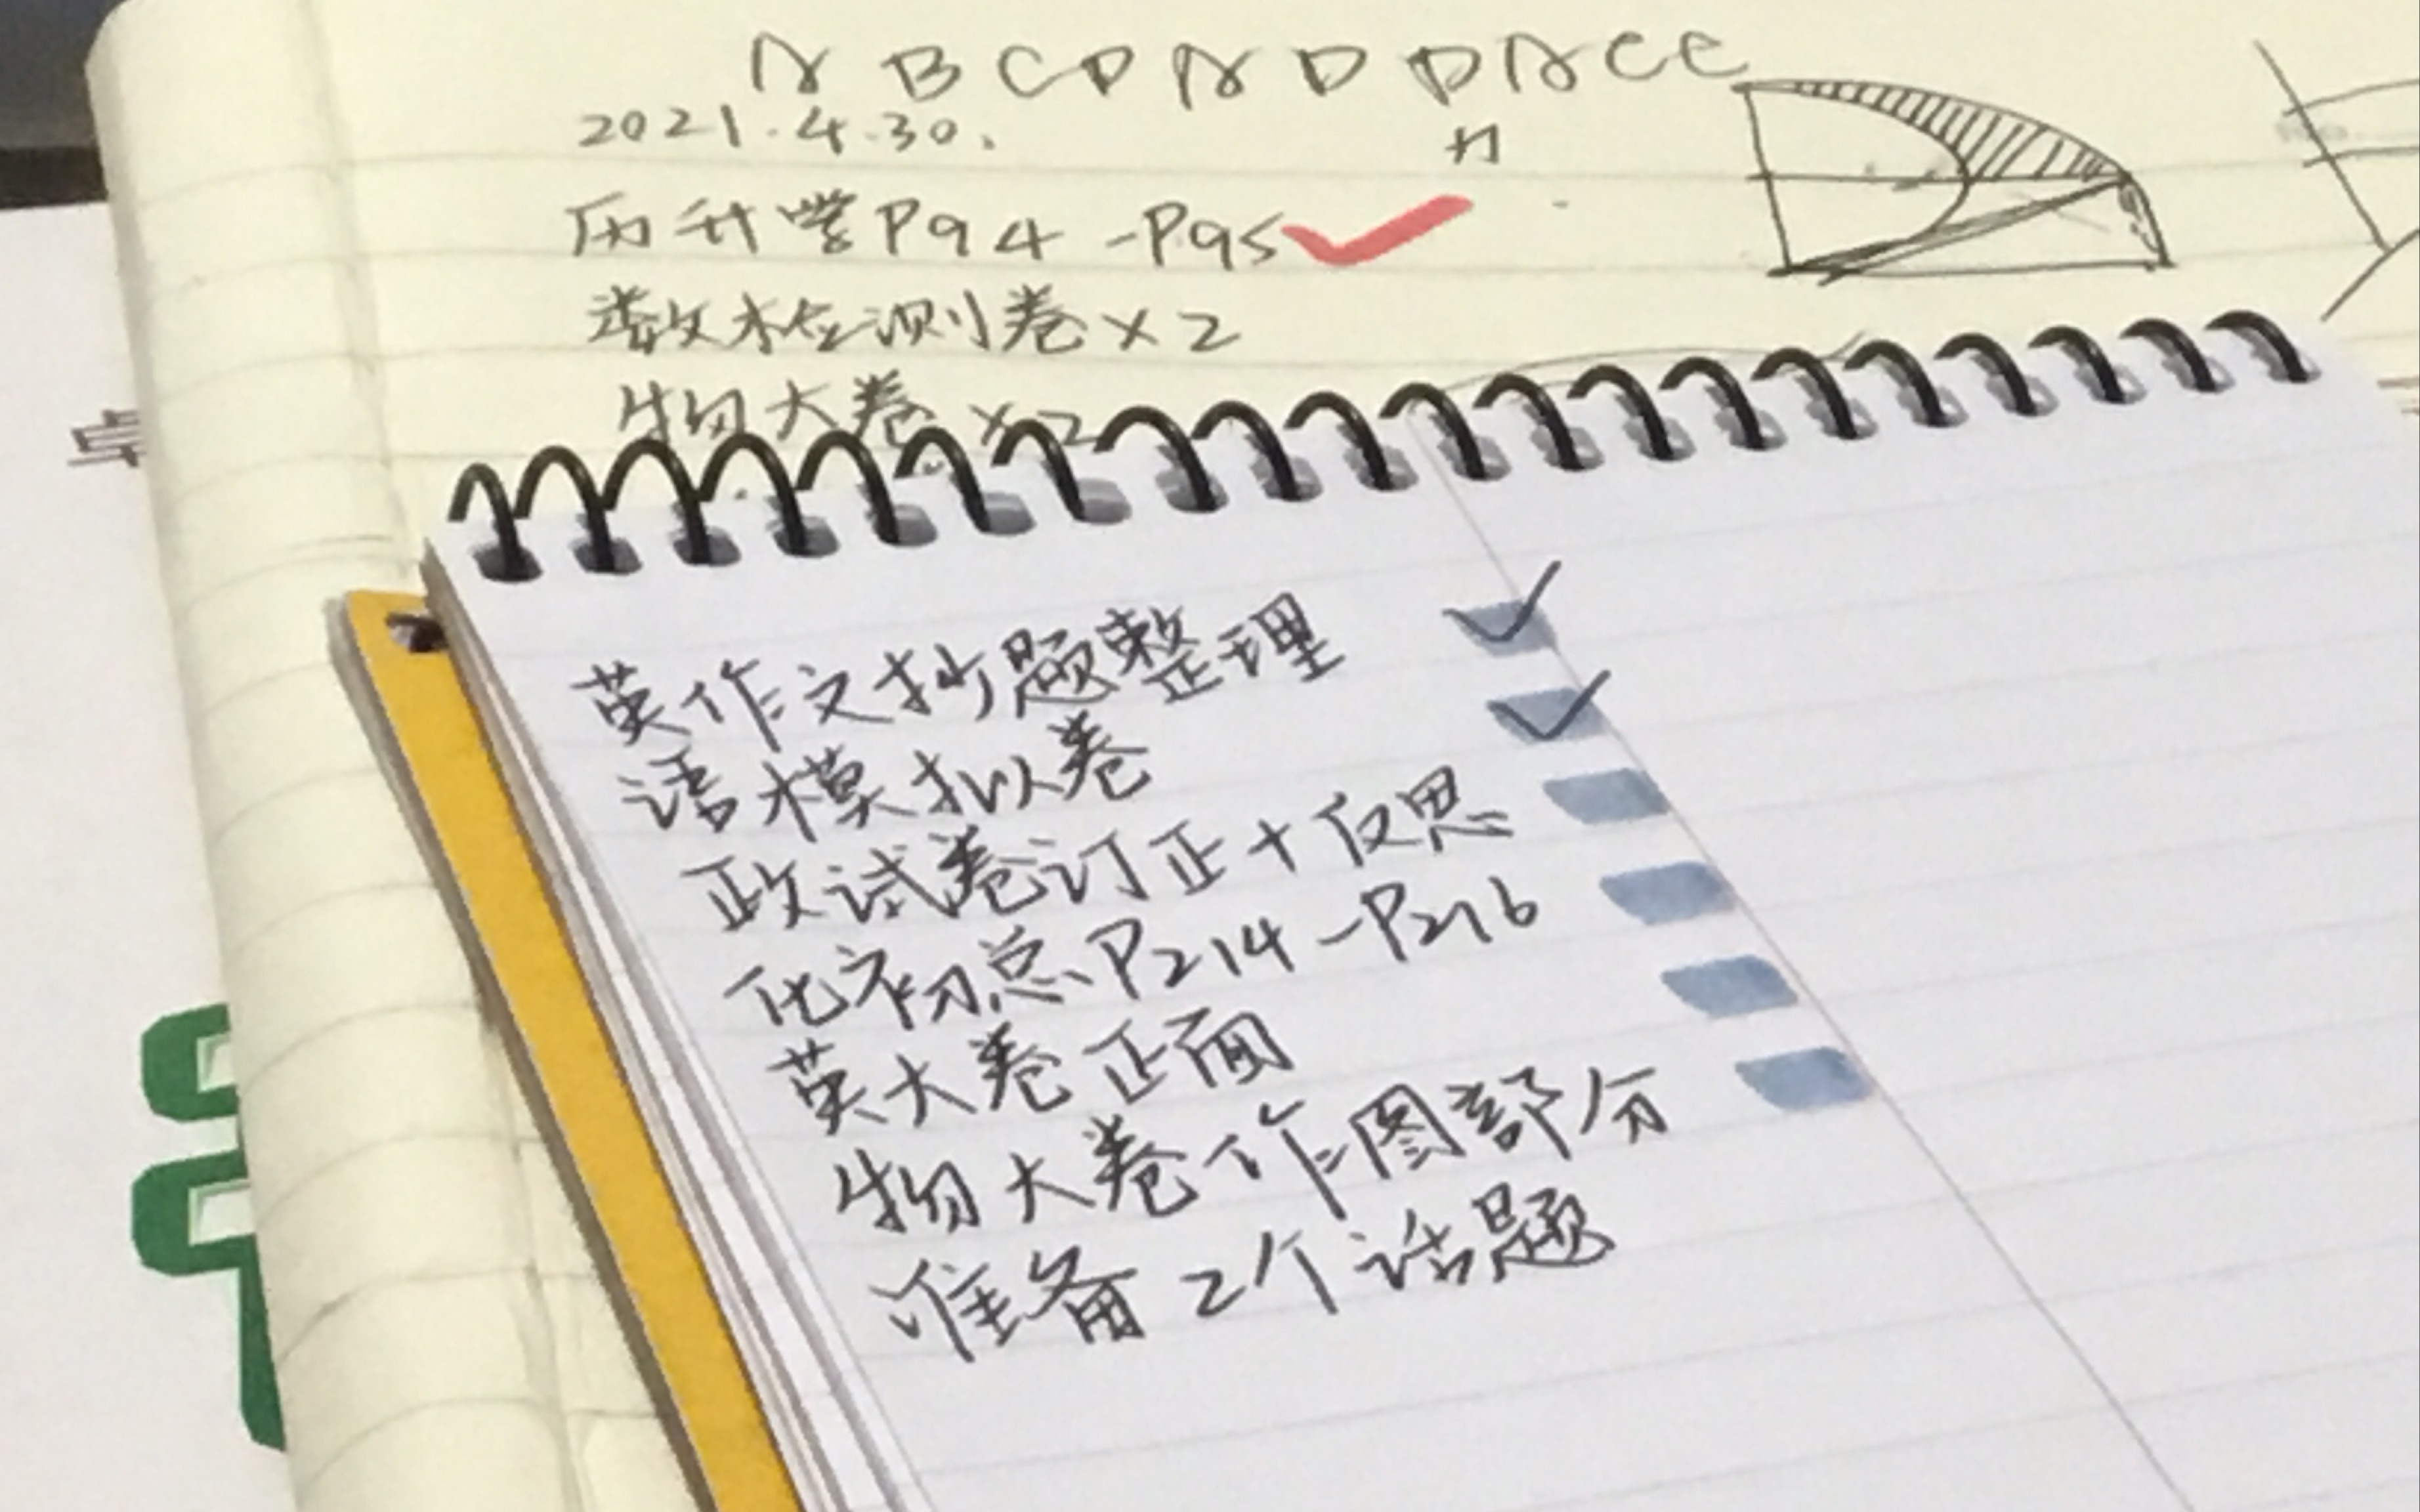 A B C D A D D A C C
2021.4.30.
历升学P94-P95
数检测卷×2
物大卷×2
英作文抄题整理
语模拟卷
政试卷订正+反思
化初总P214-P216
英大卷正面
物大卷作图部分
准备2个话题